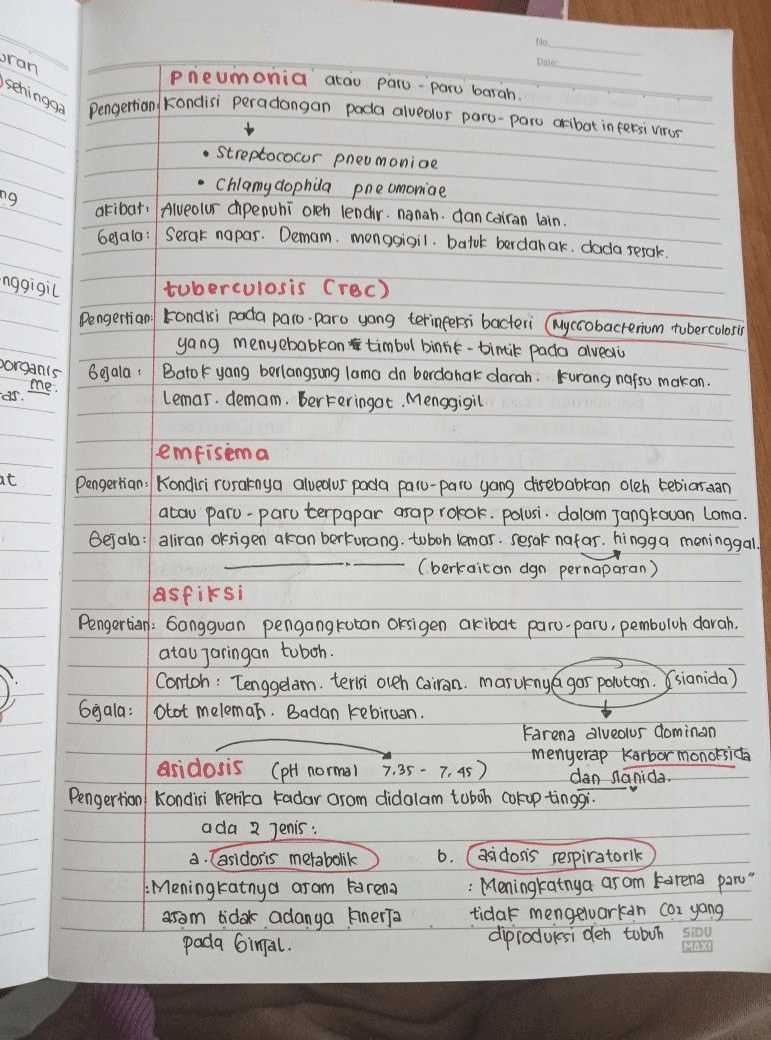 uran
sehingga
ng
nggigil
organis
me.
as.
at
No.
Date:
Pneumonia atau paru - paru basah.
Pengertian: Kondisi peradangan pada alveolus paru - paru akibat infeksi virus
• Streptococus pneumoniae
• Chlamydophila pneumoniae
akibat: Alveolus dipenuhi oleh lendir. nanah. dan cairan lain.
Gejala: Sesak napas. Demam. menggigil. batuk berdahak. dada sesak.
tuberculosis (TBC)
Pengertian: Kondisi pada paru-paru yang terinfeksi bacteri Myccobacterium tuberculosis
yang menyebabkan timbul bintik - bintik pada alveoli
Gejala: Batuk yang berlangsung lama dn berdahak darah. Kurang nafsu makan.
Lemas. demam. Berkeringat. Menggigil
emfisema
Pengertian: Kondisi rusaknya alveolus pada paru-paru yang disebabkan oleh kebiasaan
atau paru - paru terpapar asap rokok. polusi. dalam jangkauan Lama.
Gejala: aliran oksigen akan berkurang. tubuh lemas. sesak nafas. hingga meninggal.
(berkaitan dgn pernapasan)
asfiksi
Pengertian: Gangguan pengangkutan Oksigen akibat paru-paru, pembuluh darah.
atau jaringan tubuh.
Contoh: Tenggelam. terisi oleh Cairan. masuknya gas polutan. (sianida)
Gejala: Otot melemah. Badan kebiruan.
Karena alveolus dominan
menyerap karbor monoksida
dan sianida.
asidosis (pH normal 7.35 - 7.45)
Pengertian: Kondisi ketika kadar asam didalam tubuh cukup tinggi.
ada 2 jenis:
a. asidosis metabolik b. asidosis respiratorik
: Meningkatnya asam karena : Meningkatnya asam karena paru"
asam tidak adanya kinerja tidak mengeluarkan CO2 yang
pada Ginjal. diproduksi oleh tubuh
SiDU
MAXI